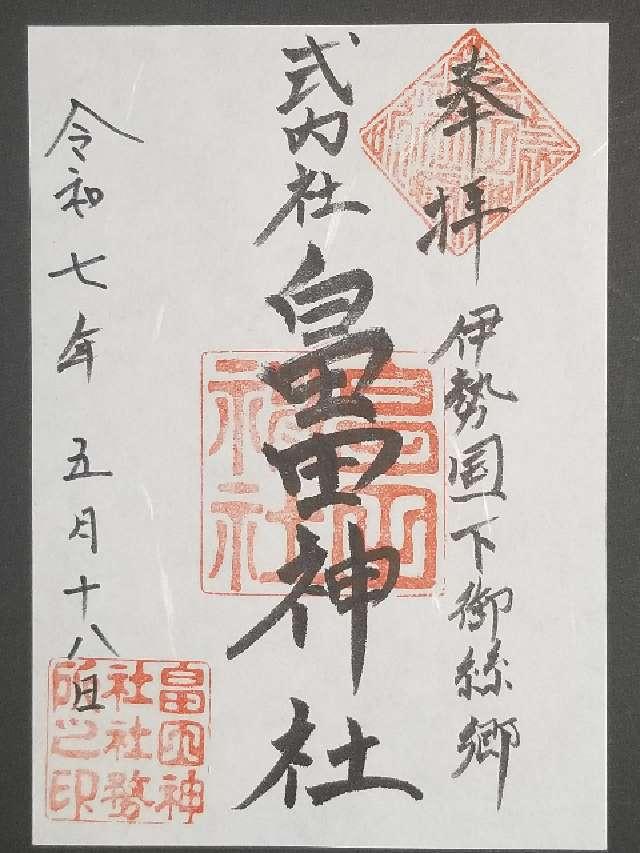 奉拝
伊勢国下御絲郷
式内社
畠田神社
畠田神社
令和七年五月十八日
畠田神
社社務
所之印